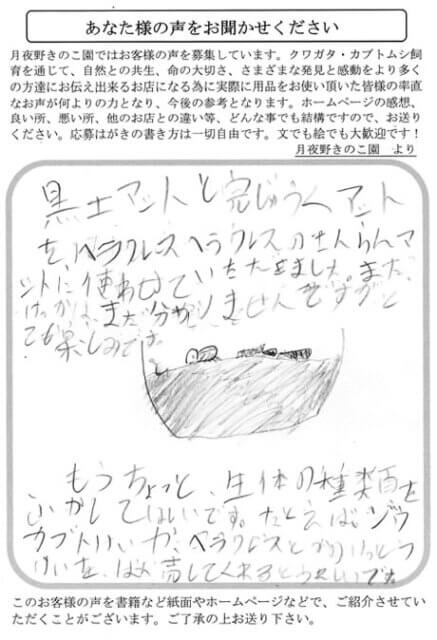 あなた様の声をお聞かせください
月夜野きのこ園ではお客様の声を募集しています。クワガタ・カブトムシ飼
育を通じて、自然との共生、命の大切さ、さまざまな発見と感動をより多く
の方達にお伝え出来るお店になる為に実際に用品をお使い頂いた皆様の率直
なお声が何よりの力となり、今後の参考となります。ホームページの感想、
良い所、悪い所、他のお店との違い等、どんな事でも結構ですので、お送り
ください。応募はがきの書き方は一切自由です。文でも絵でも大歓迎です！
月夜野きのこ園　より
黒土マットと完じゅくマット
を、ヘラクレスヘラクレスのさんらんマ
ットに使わせていただきました。まだ、
けっかは、まだ分かりませんがすごく
ても楽しみです。
もうちょっと、生体の種類を
ふかしてほしいです。たとえばゾウ
カブトけいか、ヘラクレスと
けいを、はん売してくれるとうれしいです
このお客様の声を書籍など紙面やホームページなどで、ご紹介させてい
ただくことがございます。ご了承の上お送り下さい。